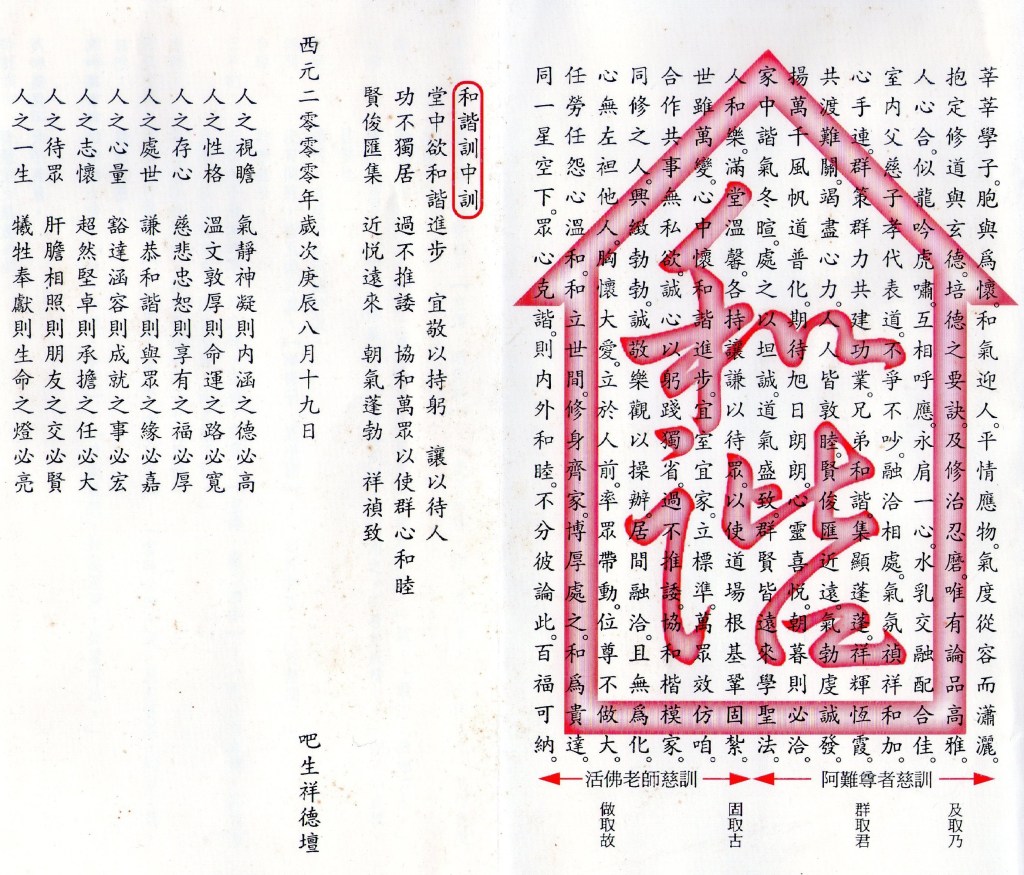 莘莘學子。胞與爲懷。和氣迎人。平情應物。氣度從容而瀟灑。
抱定修道與玄德。培德之要訣。及修治忍磨。唯有論品高雅。
人心合。似龍吟虎嘯。互相呼應。永肩一心。水乳交融配合佳。
室内父慈子孝代表道。不爭不吵。融洽相處。氣氛禎祥和加。
心手連。群策群力共建功業。兄弟和諧。集顯蓬蓬。祥輝恆霞。
共渡難關。竭盡心力。人人皆敦睦。賢俊匯近遠。氣勃虔誠發。
揚萬千風帆道普化。期待旭日朗朗。心靈喜悦。朝暮則必洽。
家中諧氣冬暄。處之以坦誠。道氣盛致。群賢皆遠來學聖法。
人和樂。滿堂溫馨。各持讓謙以待眾。以使道場根基鞏固紮。
世雖萬變。心中懷和諧進步。宜室宜家。立標準。萬眾效仿咱。
合作共事無私欲。誠心以躬踐。獨省。過不推諉。協和楷模家。
同修之人。興緻勃勃。誠敬樂觀以操辦。居間融洽。且無爲化。
心無左袒他人。胸懷大愛。立於人前。率眾帶動。位尊不做大。
任勞任怨心溫和。和立世間。修身齊家。博厚處之。和爲貴達。
同一星空下。眾心克諧。則内外和睦。不分彼論此。百福可納。
和諧
阿難尊者慈訓
活佛老師慈訓
及取乃
群取君
固取古
做取故
和諧訓中訓
堂中欲和諧進步 宜敬以持躬 讓以待人
功不獨居 過不推諉 協和萬眾以使群心和睦
賢俊匯集 近悦遠來 朝氣蓬勃 祥禎致
西元二零零零年歲次庚辰八月十九日 吧生祥德壇
人之視瞻 氣靜神凝則内涵之德必高
人之性格 溫文敦厚則命運之路必寬
人之存心 慈悲忠恕則享有之福必厚
人之處世 謙恭和諧則與眾之緣必嘉
人之心量 豁達涵容則成就之事必宏
人之志懷 超然堅卓則承擔之任必大
人之待眾 肝膽相照則朋友之交必賢
人之一生 犧牲奉獻則生命之燈必亮